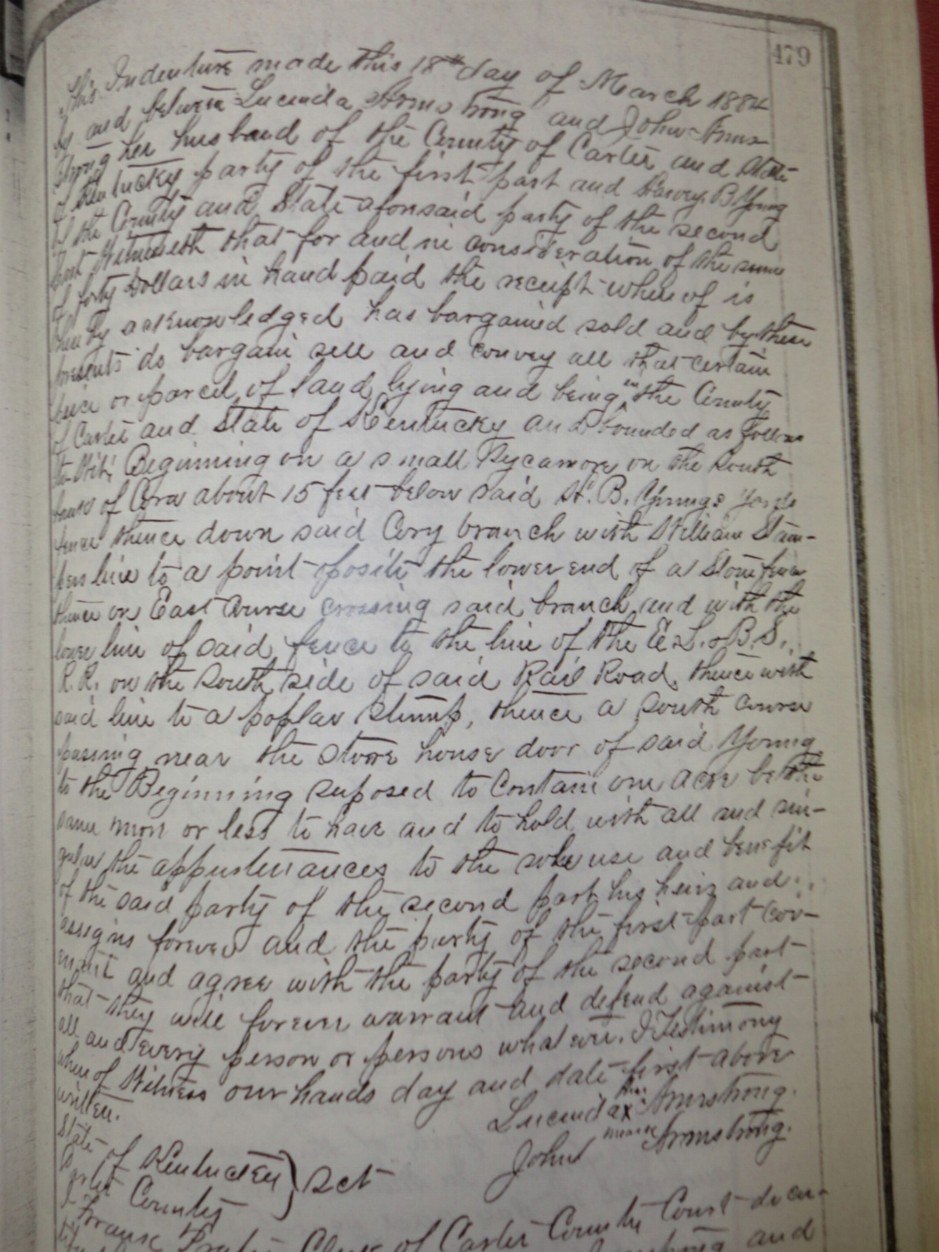 479
This Indenture made this 18th day of March 1884
by and between Lucinda Armstrong and John Arm-
strong her husband of the County of Carter and State
of Kentucky party of the first part and Harvey B Young
of the County and State aforesaid party of the second
part Witnesseth that for and in consideration of the sum
of forty Dollars in hand paid the receipt where of is
hereby acknowledged has bargained sold and by these
presents do bargain sell and convey all that certain
piece or parcel of land lying and being in the County
of Carter and State of Kentucky and bounded as follows
to-Wit: Beginning on a small Sycamore on the South
bank of about 15 feet below said H. B. Youngs
fence thence down said branch with William Stam-
pers line to a point oposite the lower end of a Stone fence
thence on East Course crossing said branch and with the
lower line of said fence to the line of the E. L. & B. S.
R. R. on the South side of said Rail Road, thence with
said line to a poplar stump, thence a South Course
passing near the store house door of said Young
to the Beginning suposed to Contain one acre be the
same more or less to have and to hold with all and sin-
gular the appurtenances to the sole use and benefit
of the said party of the second part his heirs and
assigns forever and the party of the first part cov-
enant and agree with the party of the second part
that they will forever warrant and defend against
all and every person or persons whatever. I Testimony
where of Witness our hands day and date first above
written.
Lucinda x Armstrong.
mark
John Armstrong.
State of Kentucky } Sct
Carter County
I Clerk of Carter County Court do cer-
and